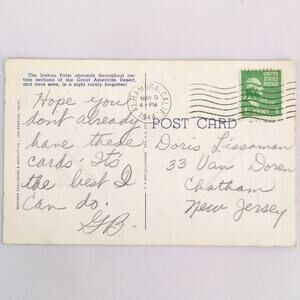 The Joshua Palm abounds throughout cer-
tain sections of the Great American Desert,
and once seen, is a sight rarely forgotten!
Hope you
don't already
have these
cards. It's
the best I
can do.
G.B.
ALHAMBRA, CALIF.
MAY 9
4-PM
UNITED STATES
POSTAGE
POST CARD
Doris Lissaman
33 Van Doren
Chatham
New Jersey